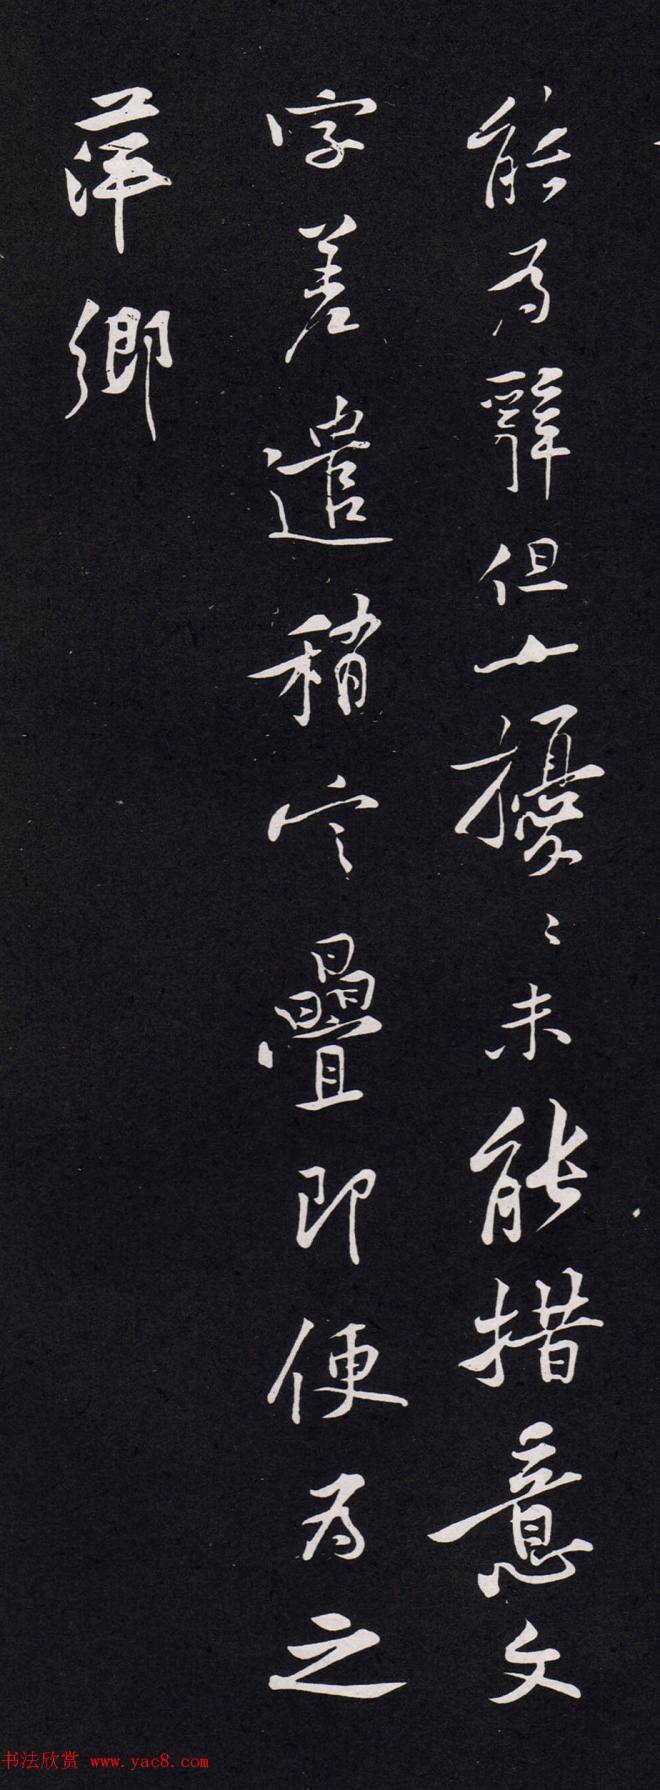 能為辭但擾〻未能措意文
字差遣稍定疊即便為之
萍鄉
书法欣赏 www.yac8.com